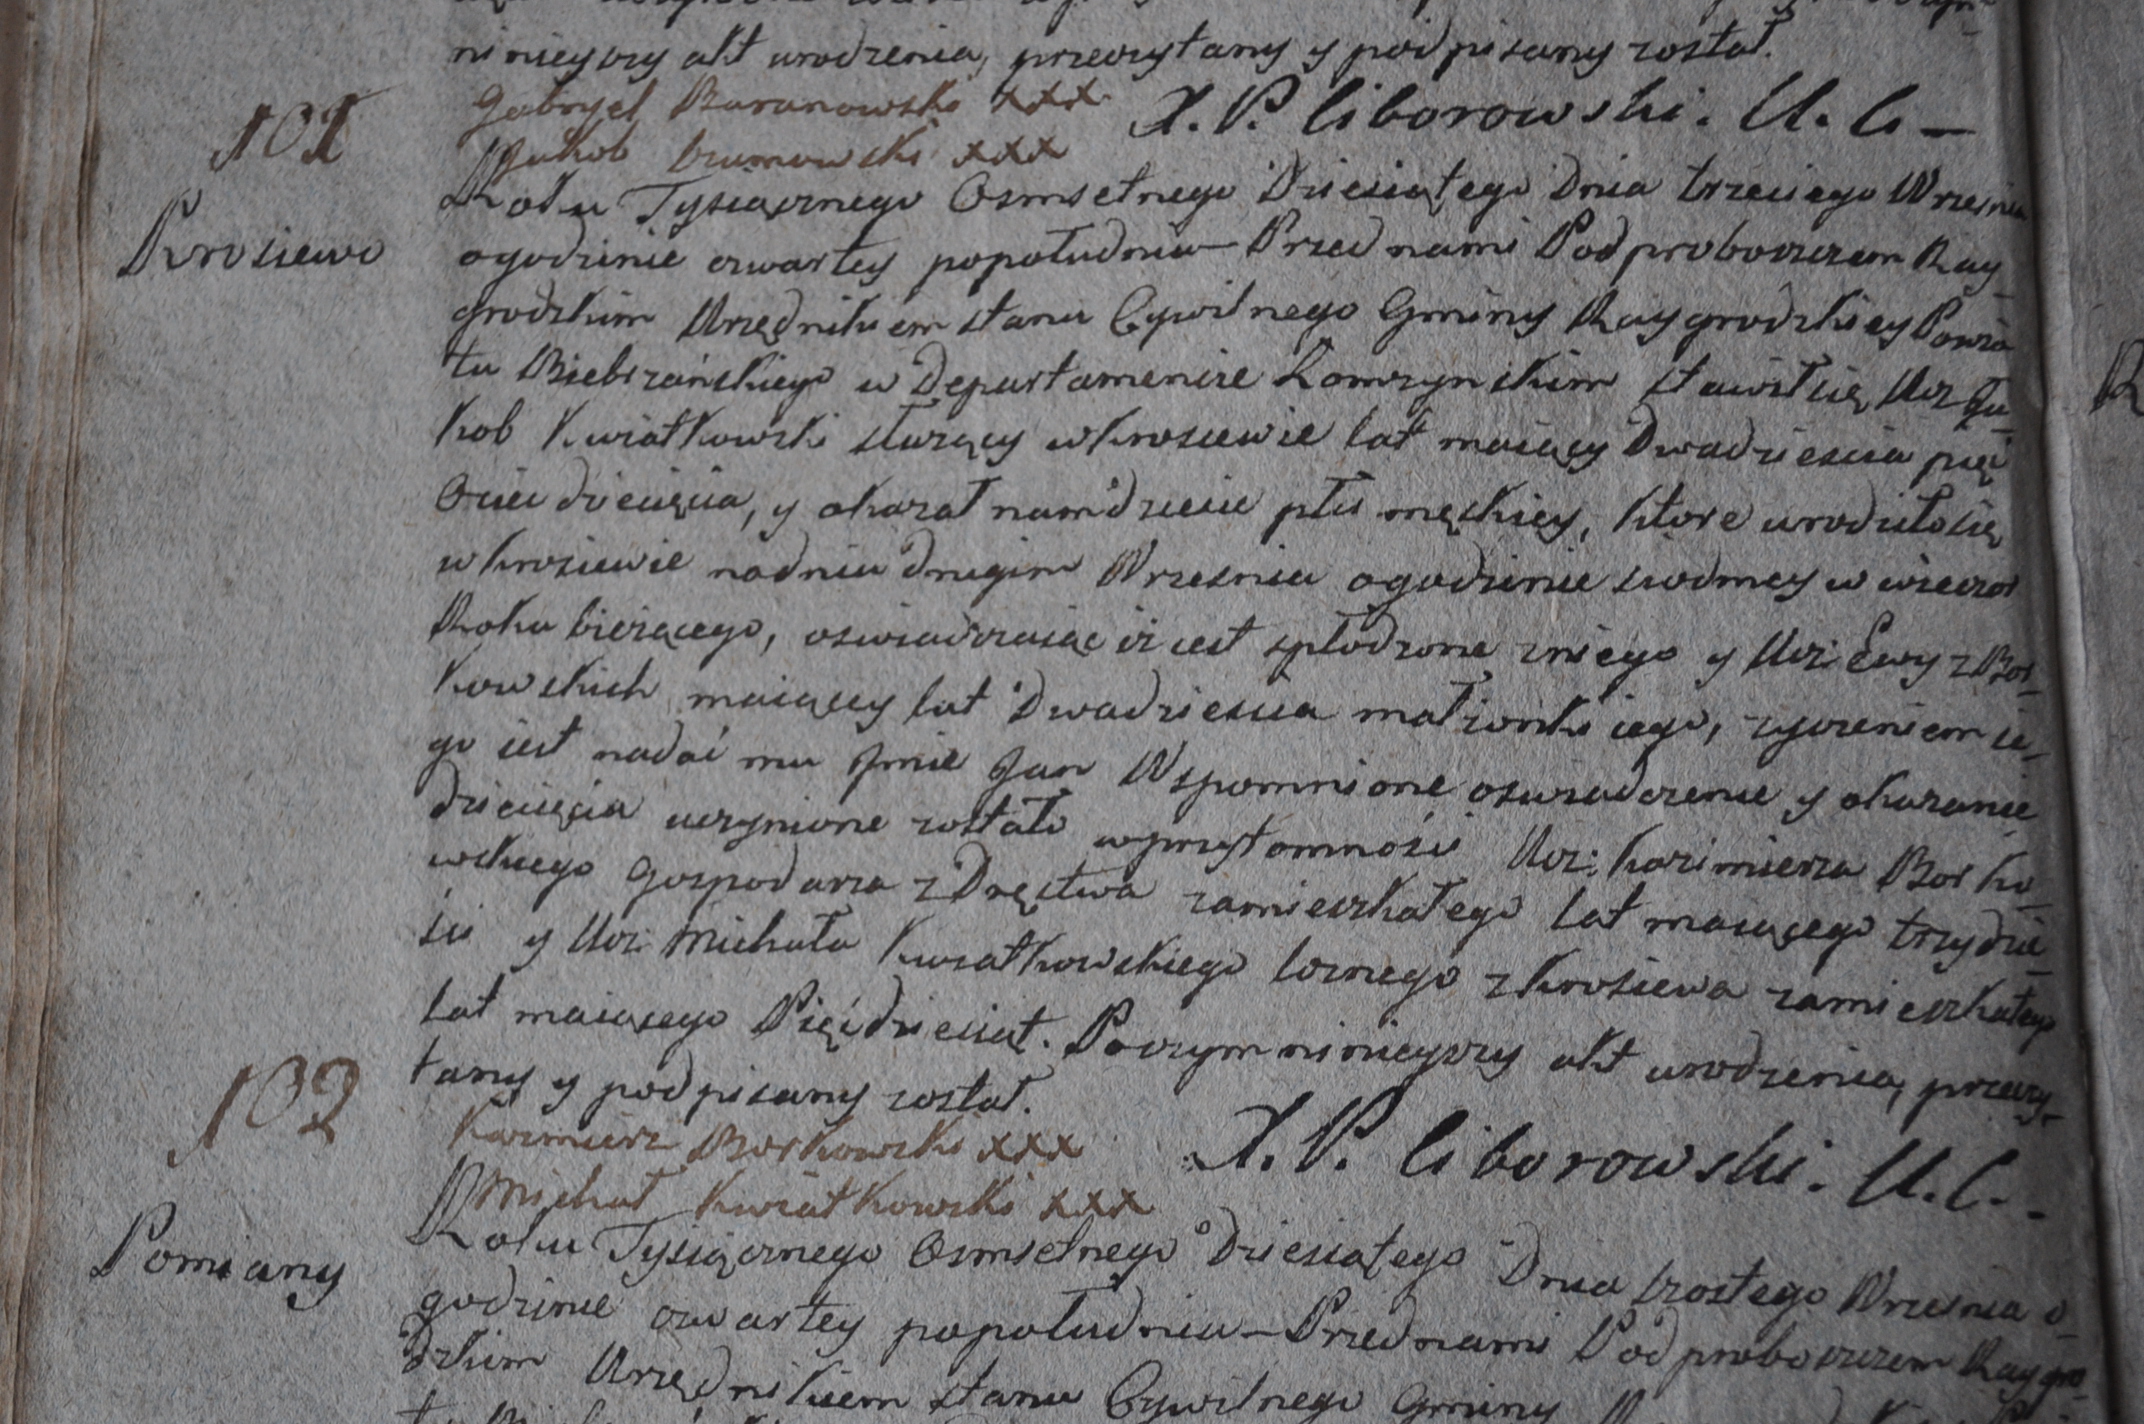 ninieyszy akt urodzenia, przeczytany y podpisany został.
Gabryel Baranowski xxx X. P. Liborowski. U. C.
Jakob xxx
101
Krosiewo
Roku Tysiącznego Osmsetnego Dziesiątego Dnia trzeciego Wrzesnia
ogodzinie czwartey popołudniu – Przed nami Podproboszczem Ray-
grodzkim Urzędnikiem stanu Cywilnego Gminy Raygrodzkiey Powia
tu Biebrzańskiego w Departamencie Łomzynskim stawił się Ucz: Ja-
kob Kwiatkowski słuzący wkrosiewie lat maiący Dwadziescia pięć
Oyciec dziecięcia, y okazał nam dziecie płci męskiey, ktore urodziło się
wkrosiewie nadniu drugim Wrzesnia ogodzinie siodmey w wieczor
Roku biezącego, oswiadczaiąc iż iest spłodzone zniego y Ucz: Ewy z Bor-
kowskich maiącey lat Dwadziescia małzonki iego, zyczeniem ie-
go iest nadać mu Jmie Jan Wspomnione oswiadczenie y okazanie
dziecięcia uczynione zostało wprzytomności Ucz: kazimierza Borko-
wskiego Gospodarza z Dręstwa zamieszkałego lat maiącego trzydzie-
ści y Ucz: Michała Kwiatkowskiego z krosiewa zamieszkałego
lat maiącego Pięćdziesiąt. Poczym ninieyszy akt urodzenia, przeczy-
tany y podpisany został.
Kazimierz Borkowski xxx X. P. Liborowski. U. C.
Michał Kwiatkowski xxx
102
Pomiany
Roku Tysiącznego Osmsetnego Dziesiątego Dnia Wrzesnia o-
godzinie czwartey popołudniu – Przed nami Podproboszczem Raygro-
dzkim Urzędnikiem stanu Cywilnego Gminy